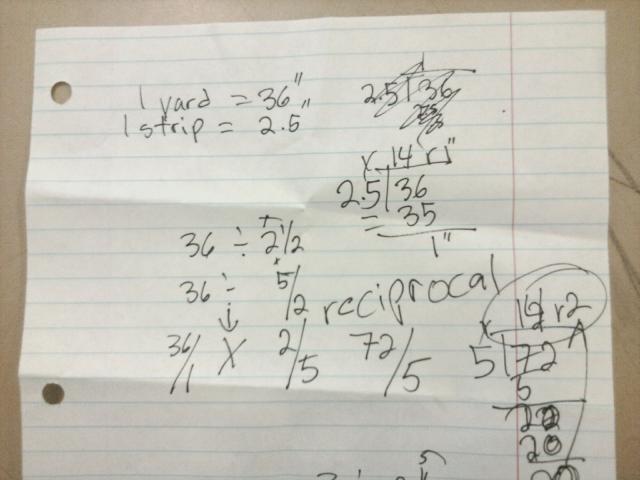 1 yard = 36"
1 strip = 2.5"
2.5 36
14 r1"
2.5 36
= 35
1"
36 ÷ 2 1/2
36 ÷ 5/2
reciprocal
36/1 X 2/5 72/5
14 r2
5 72
5
20